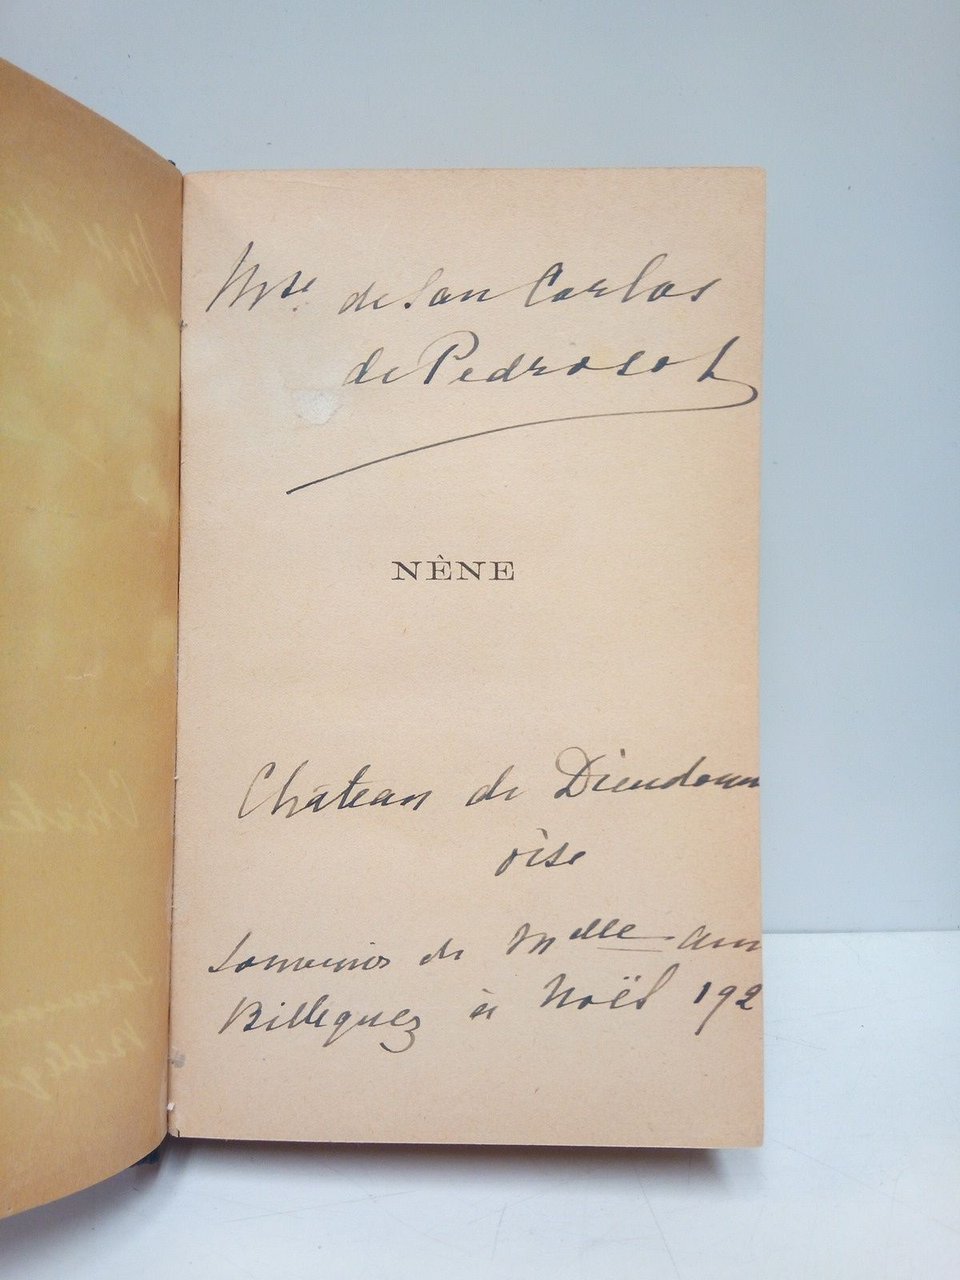 Mse. de San Carlos
de Pedroso
NÈNE
Château de Dieudonn
oise
Souvenir de Melle
Billeguez à Noël 192